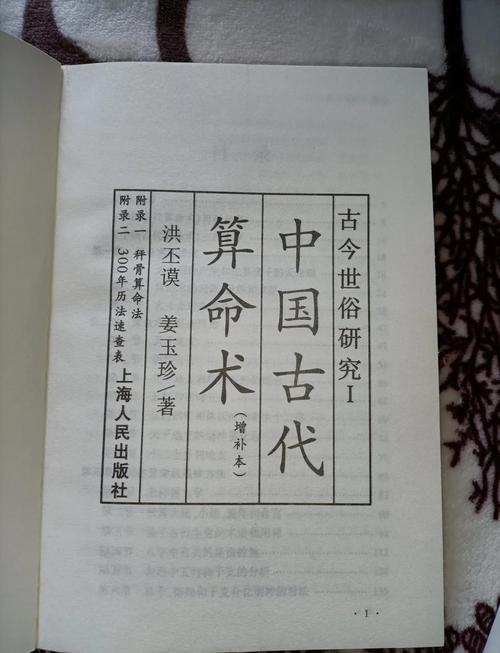 古今世俗研究I
中国古代
算命术
(增补本)
洪丕谟 姜玉珍/著
附录一 秤骨算命法
附录二 300年历法速查表
上海人民出版社
·1·